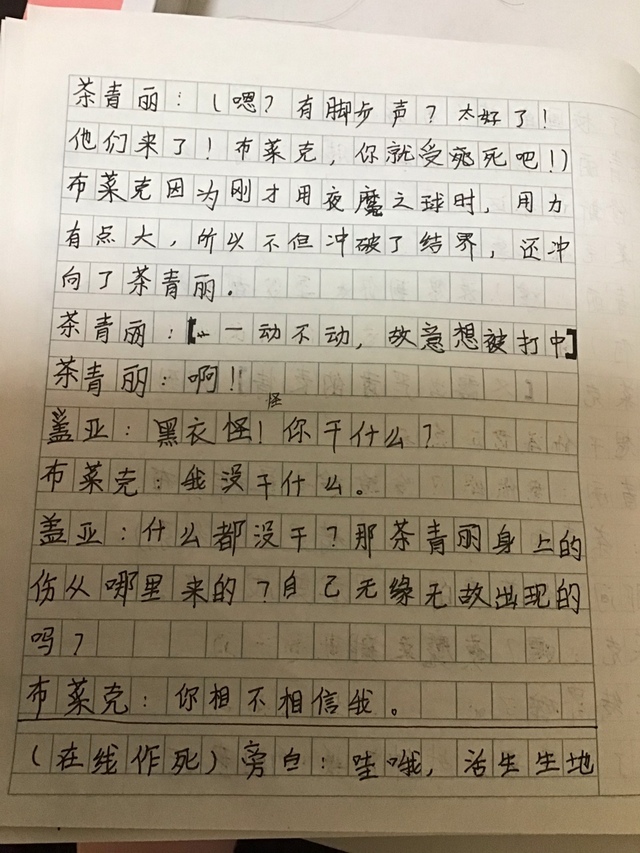 茶青丽：（嗯？有脚步声？太好了！
他们来了！布莱克，你就受死死吧！）
布莱克因为刚才用夜魔之球时，用力
有点大，所以不但冲破了结界，还冲
向了茶青丽．
茶青丽：【…一动不动，故意想被打中】
茶青丽：啊！！
怪
盖亚：黑衣怪！你干什么？
布莱克：我没干什么。
盖亚：什么都没干？那茶青丽身上的
伤从哪里来的？自己无缘无故出现的
吗？
布莱克：你相不相信我。
（在线作死）旁白：哇哦，活生生地